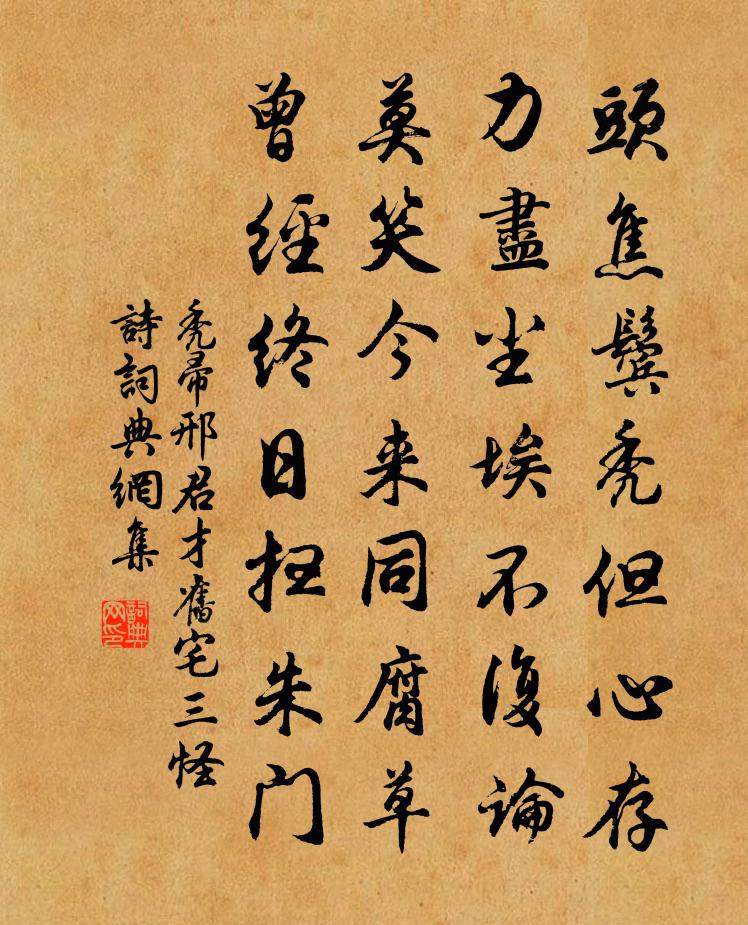 頭焦鬢禿但心存
力盡尘埃不復論
莫笑今来同腐草
曾經終日扫朱門
禿帚邢君才舊宅三怪
詩詞典網集
詞典网印